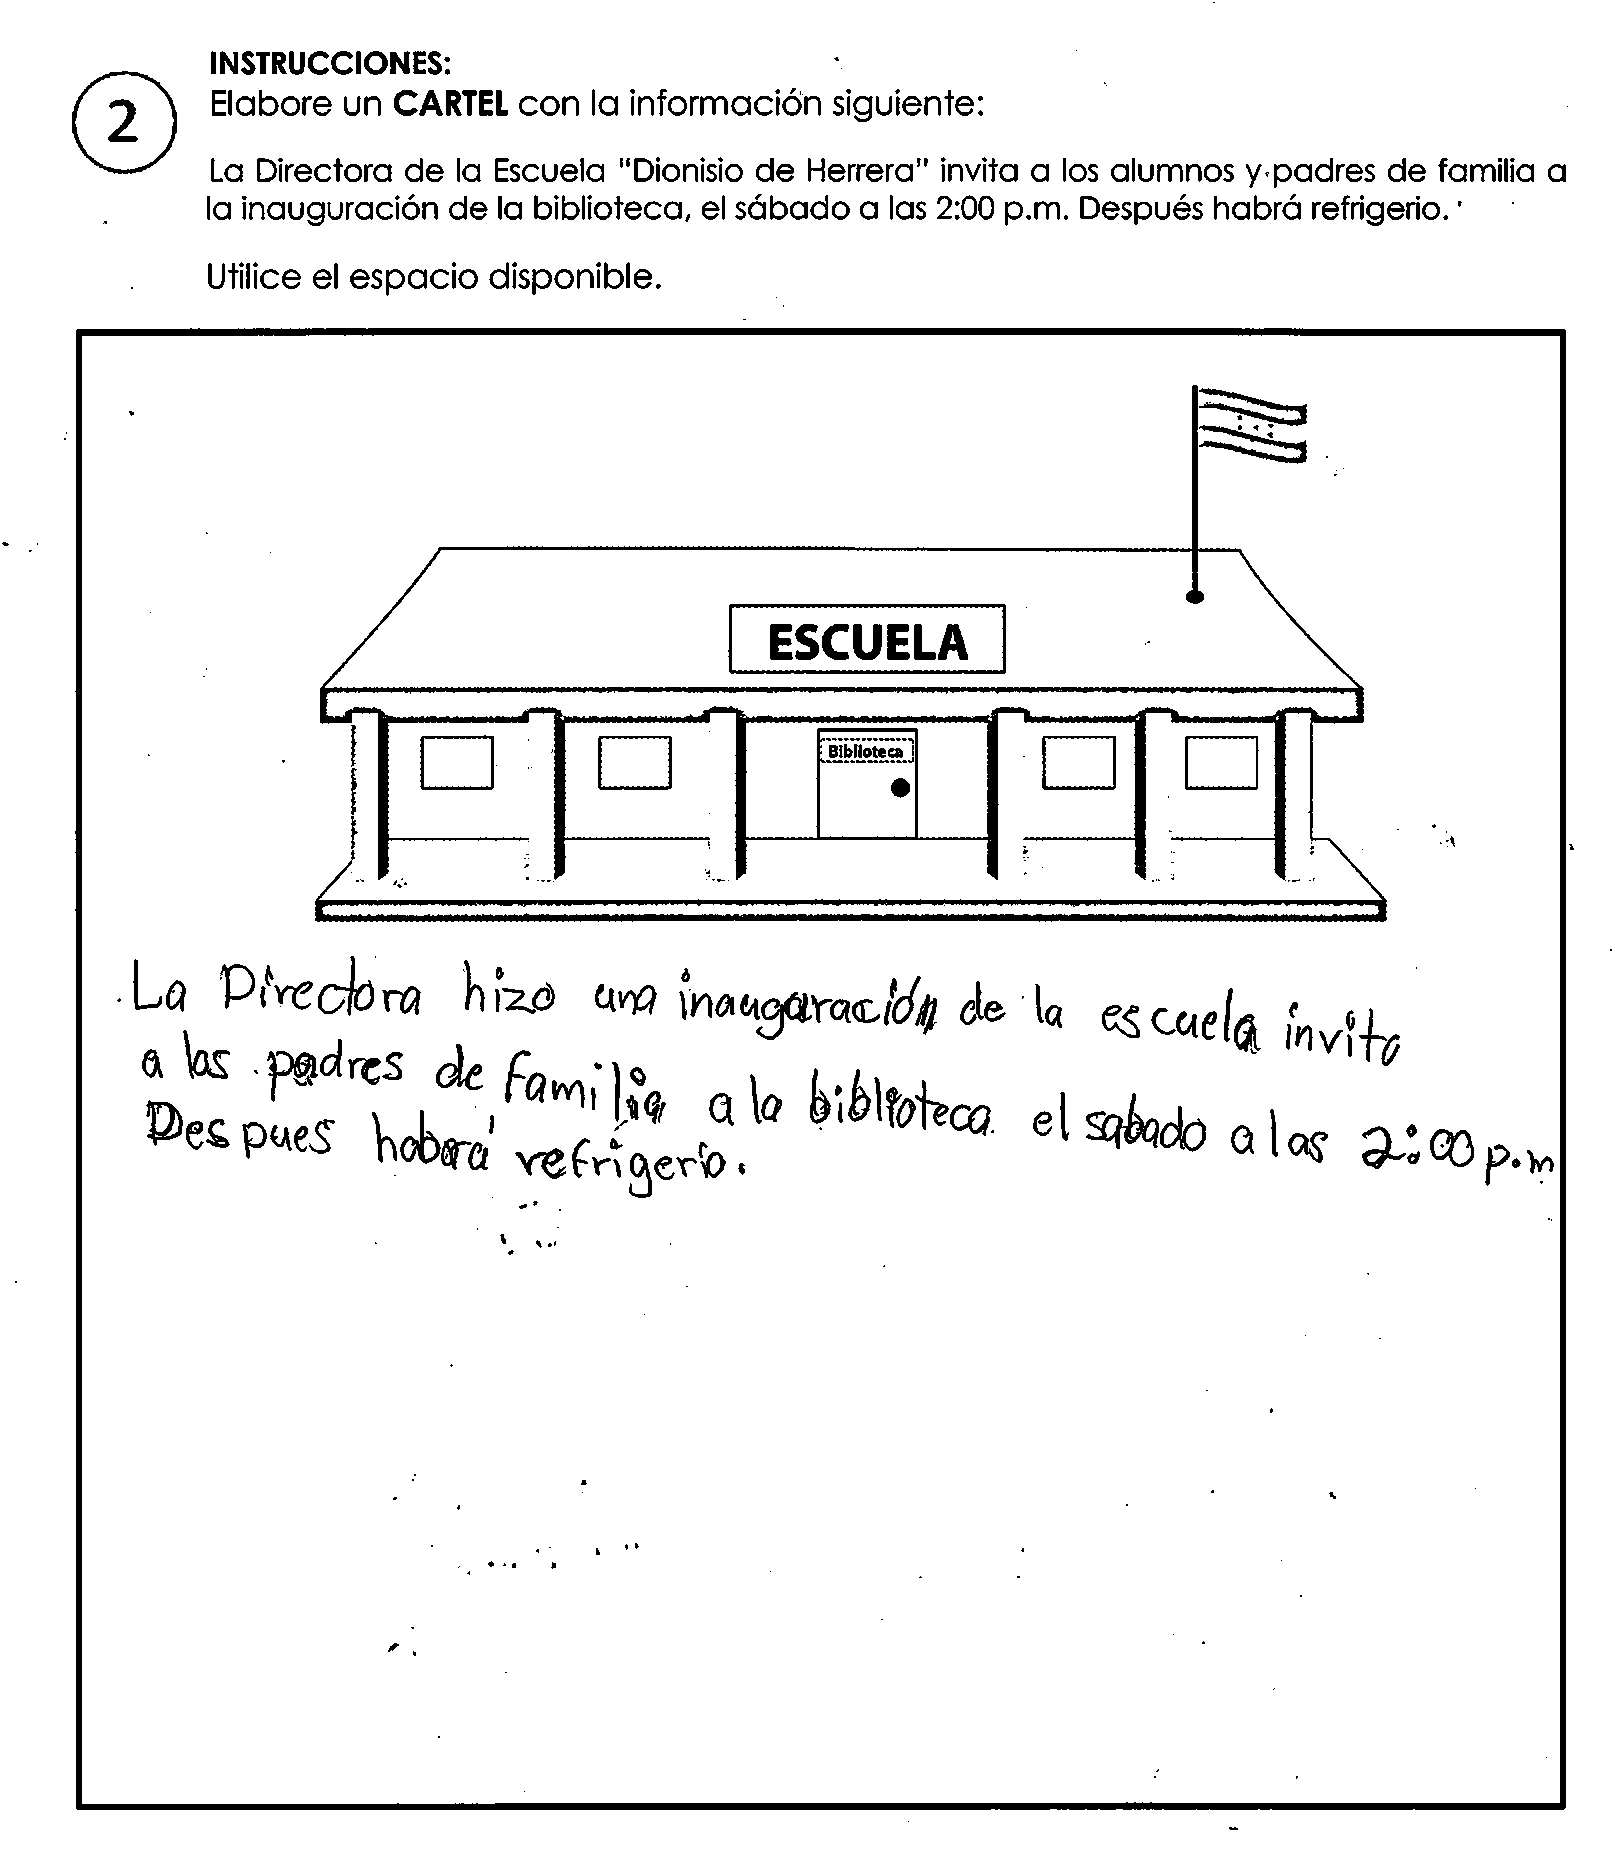 INSTRUCCIONES:
2
Elabore un CARTEL con la información siguiente:
La Directora de la Escuela "Dionisio de Herrera" invita a los alumnos y padres de familia a
la inauguración de la biblioteca, el sábado a las 2:00 p.m. Después habrá refrigerio.
Utilice el espacio disponible.
ESCUELA
Biblioteca
La Directora hizo una inauguración de la escuela invito
a las padres de familia a la biblioteca el sabado a las 2:00 p.m
Despues habrá refrigerio.